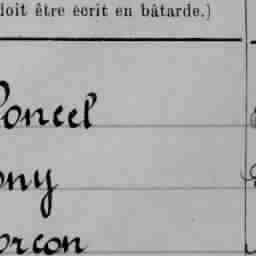 doit être écrit en bâtarde.)
Poncel
ony
orcon